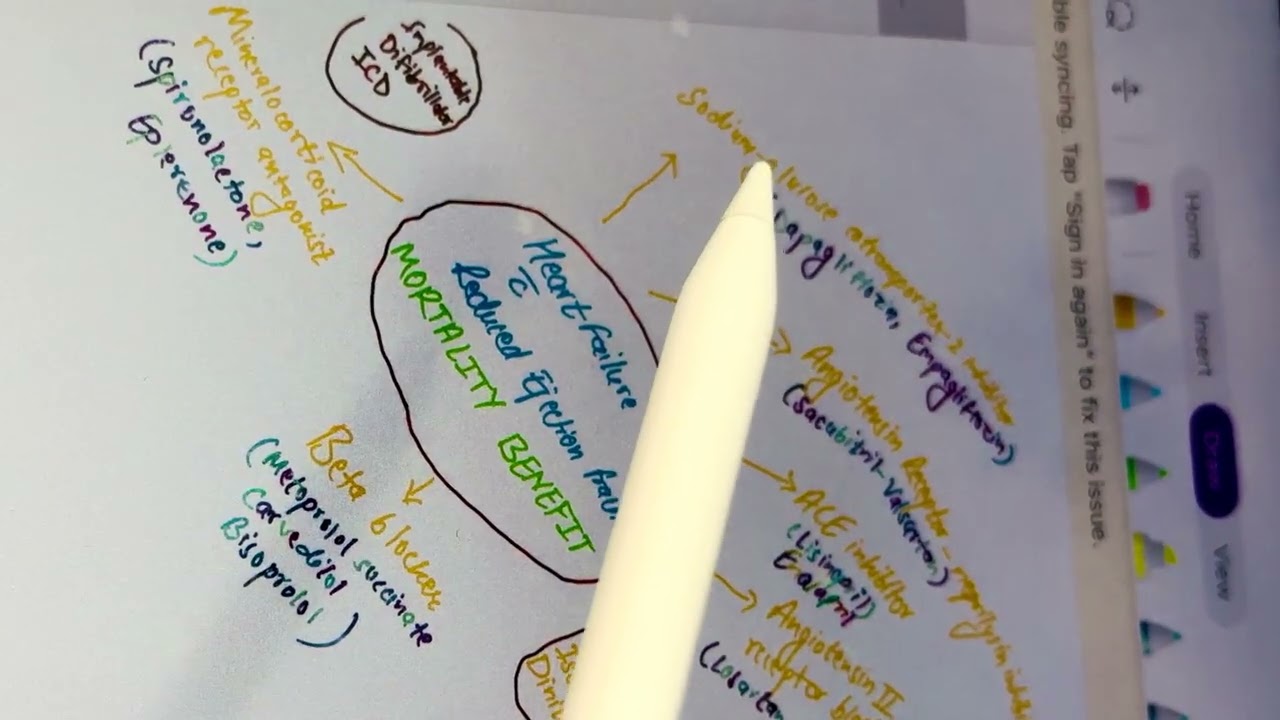 Home
Insert
Draw
View
ble syncing. Tap "Sign in again" to fix this issue.
Difibrillator
ICD
Mineralocorticoid
receptor antagonist
(Spironolactone,
Eplerenone)
Heart failure
c̄
Reduced Ejection
MORTALITY BENEFIT
Sodium-glucose cotransporter-2 inhibitor
Dapagliflozin, Empagliflozin)
Angiotensin Receptor-neprilysin
(Sacubitril-Valsartan)
ACE inhibitor
(Lisinopril)
Enalapril
Angiotensin II
receptor
(Losartan
Beta blocker
(Metoprolol succinate
Carvedilol
Bisoprolol)